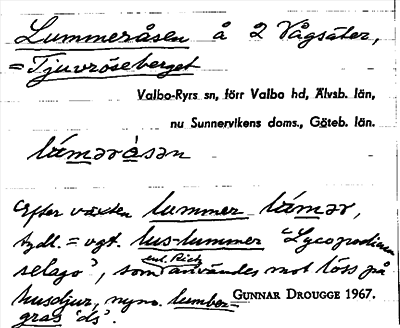 Lummeråsen å 2 Vågsäter,
= Tjuvröseberget
Valbo-Ryrs sn, förr Valbo hd, Älvsb. län,
nu Sunnervikens doms., Göteb. län.
lùmərå̀sən
Efter växten lummer lùmər,
tydl. = vgt. lus-lummer 'Lycopodium
selago', som enl. Rietz användes mot löss på
husdjur, nyno. lumber-
gras 'ds'.
GUNNAR DROUGGE 1967.